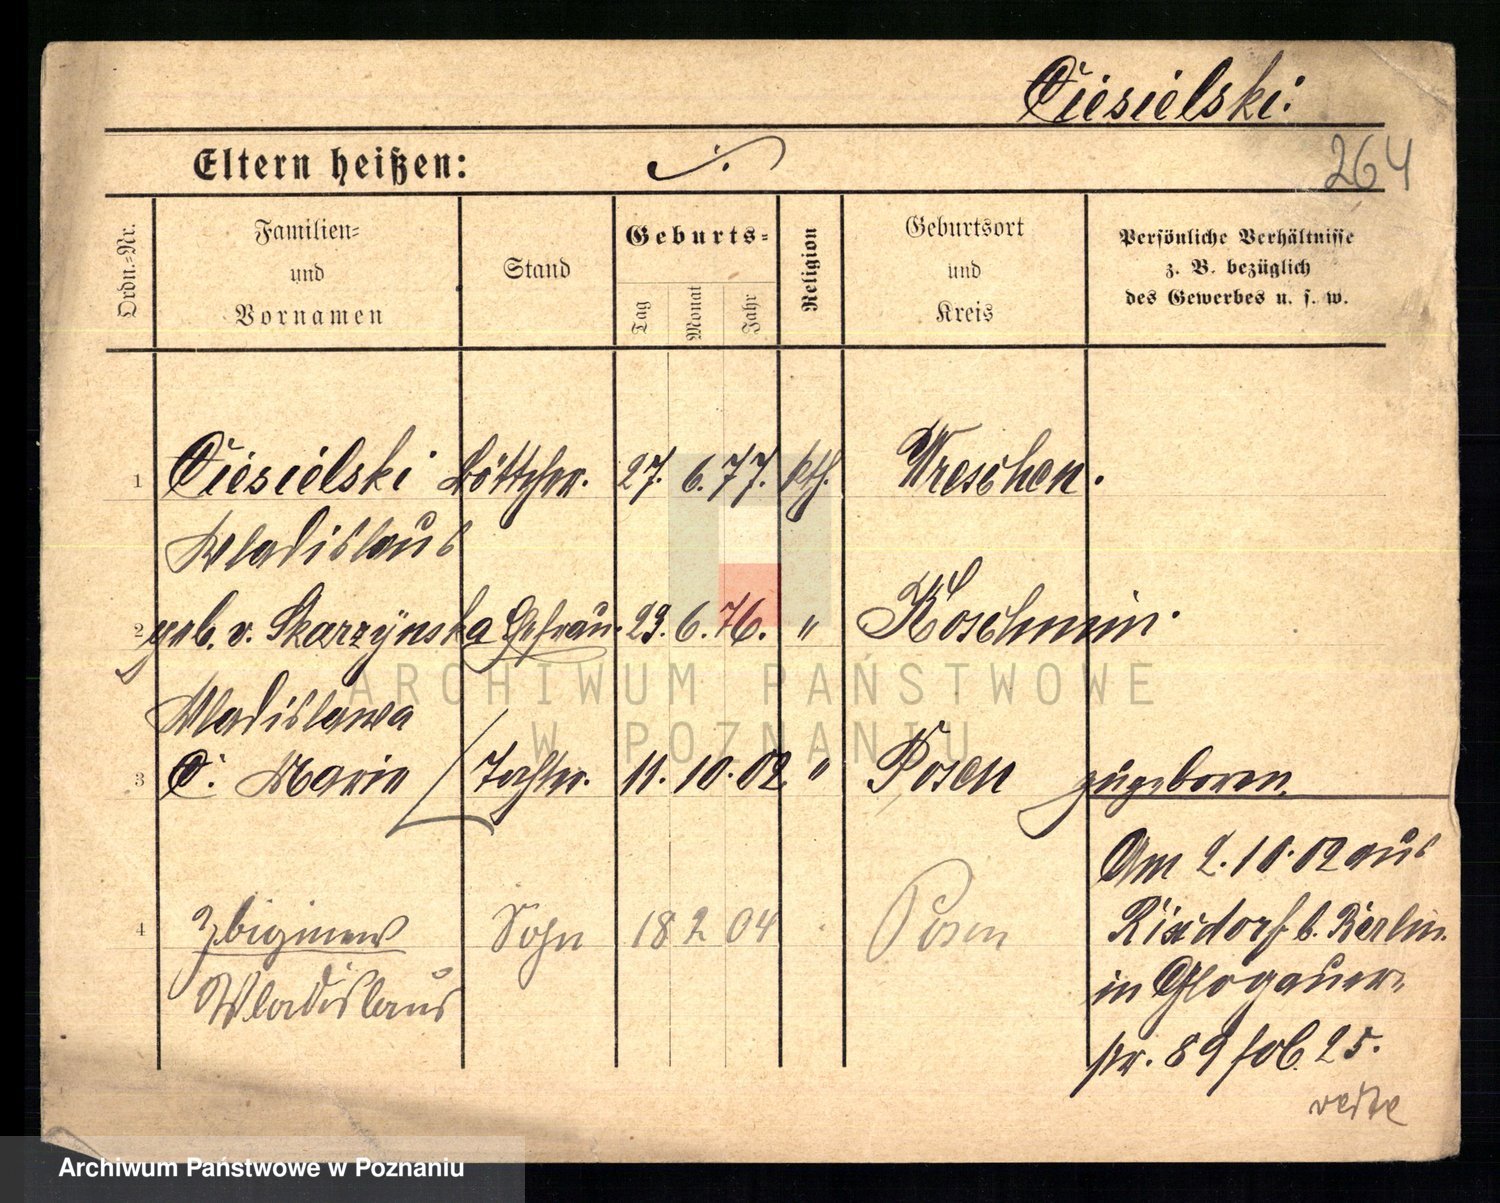 Ciesielski:
264
Eltern heißen: ./.
Ordn.-Nr.
Familien-
und
Vornamen
Stand
Geburts-
Tag
Monat
Jahr
Religion
Geburtsort
und
Kreis
Persönliche Verhältnisse
z. B. bezüglich
des Gewerbes u. s. w.
1 Ciesielski Böttcher. 27. 6. 77. kth. Wreschen.
Wladislaus
2 geb. v. Skarzÿnska Ehefrau. 23. 6. 76. " Koschmin.
Wladislawa
3 C. Marie Tochter. 11. 10. 02 " Posen zugeboren.
Am 2. 10. 02 aus
4 Zbigniew Sohn 18 2 04 Posen
Rixdorf b. Berlin.
Wladislaus
in Glogauer-
str. 89
25.
ARCHIWUM PAŃSTWOWE
W POZNANIU
Archiwum Państwowe w Poznaniu